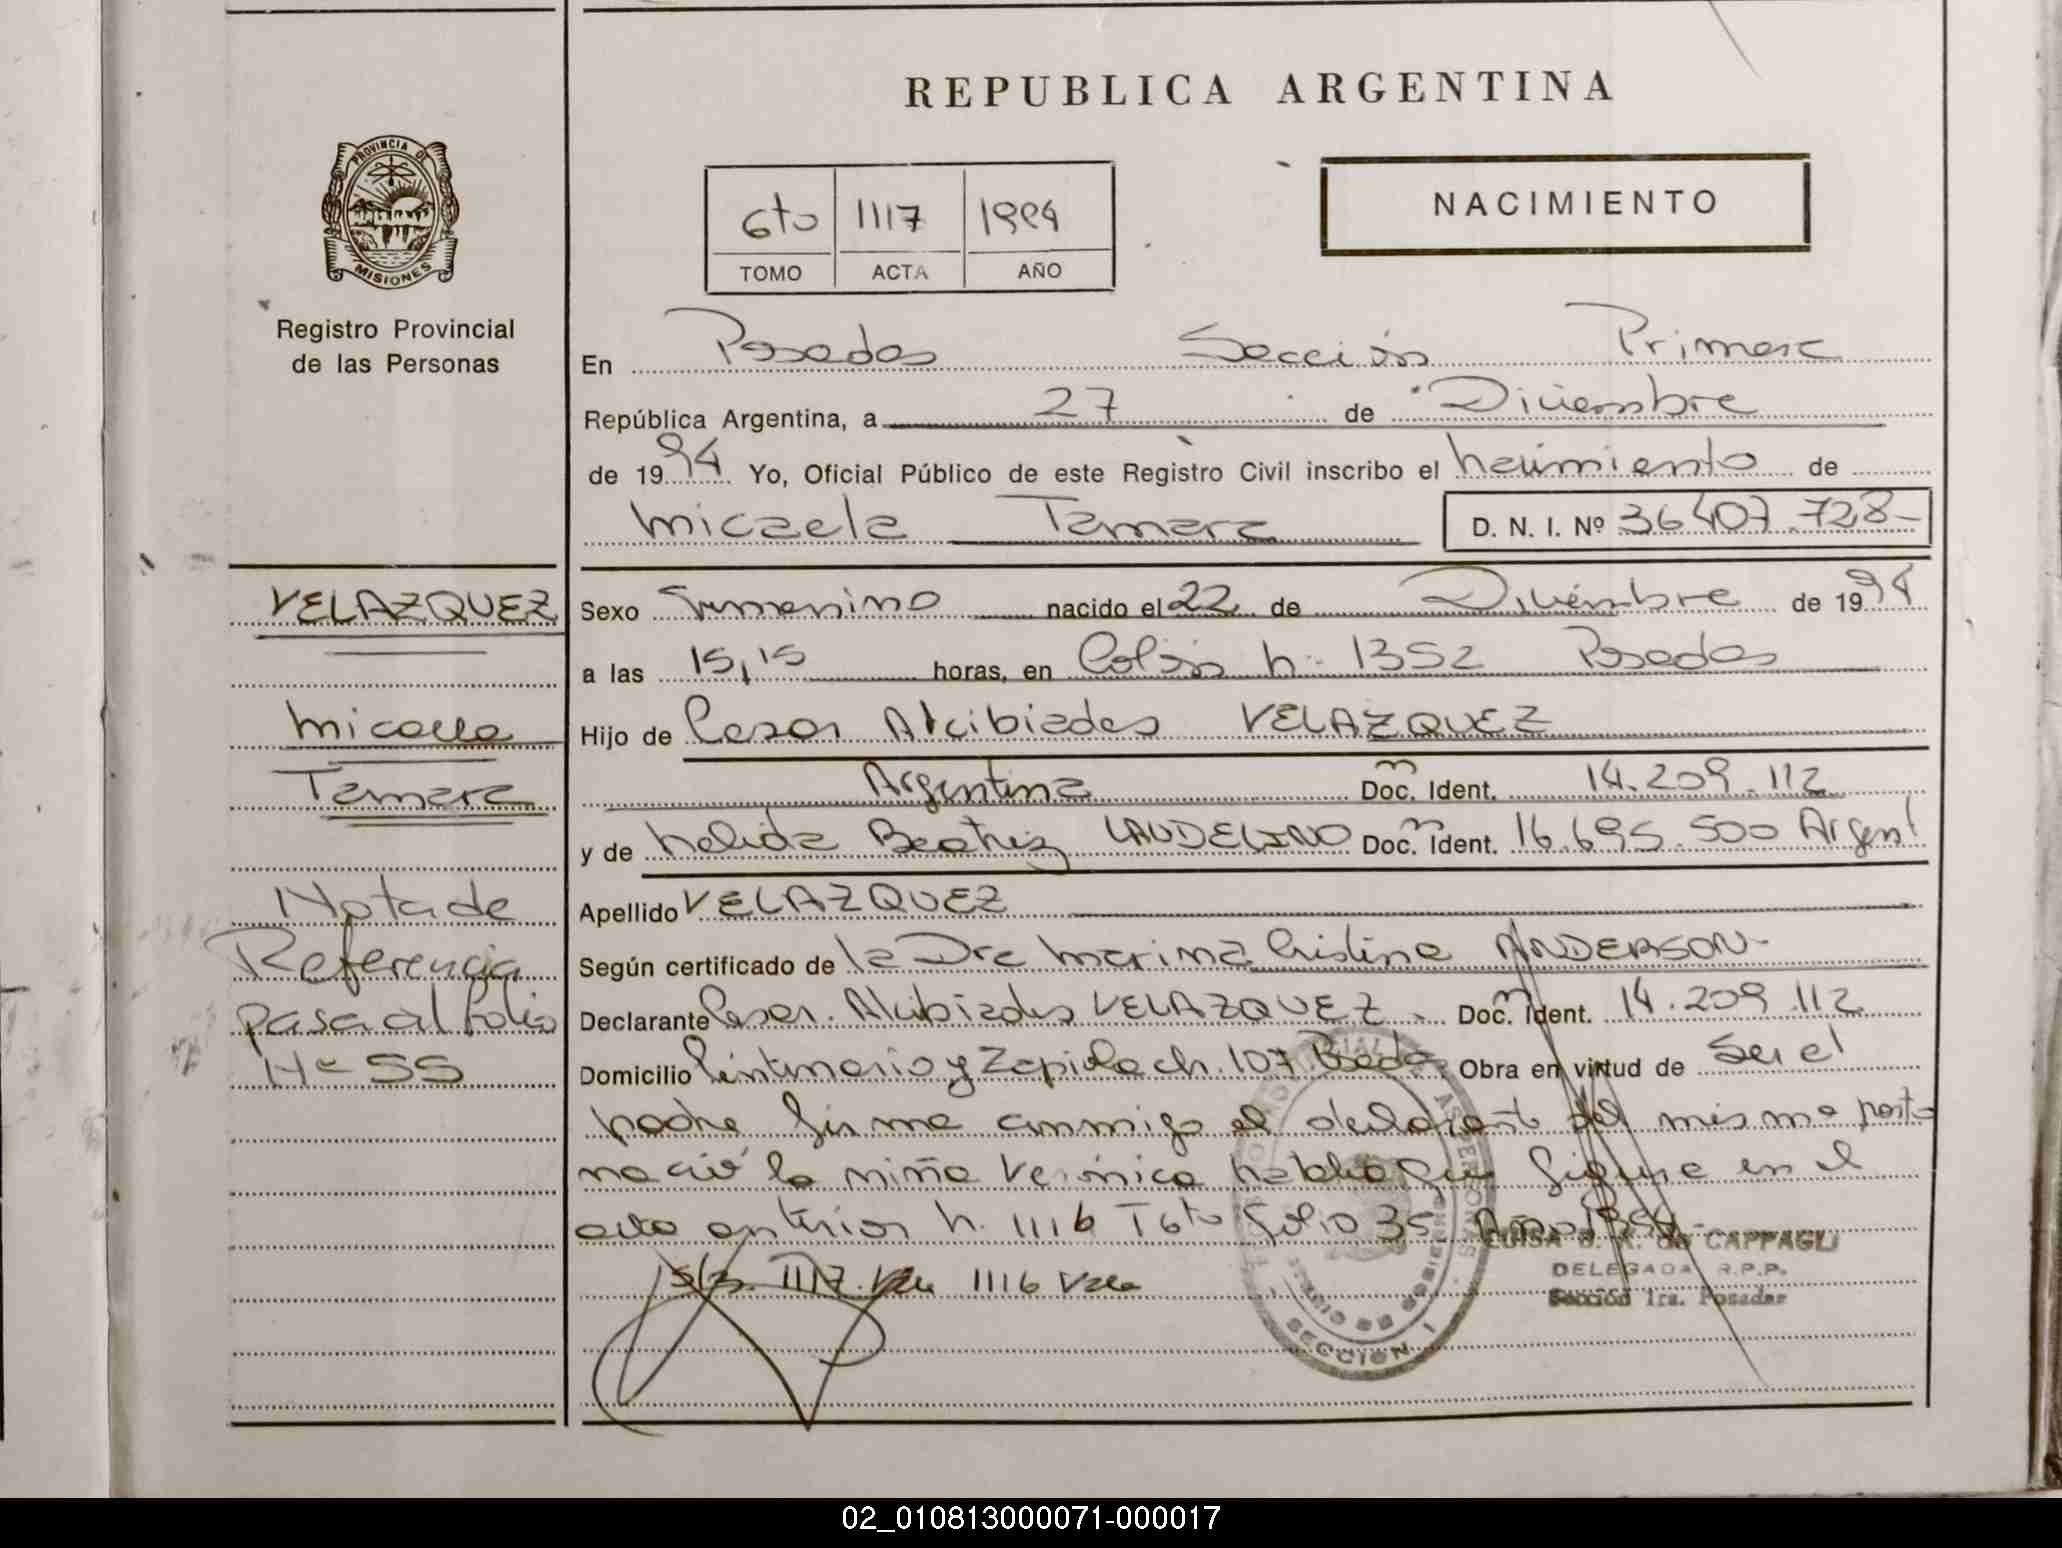 REPUBLICA ARGENTINA
PROVINCIA DE
MISIONES
Registro Provincial
de las Personas
6to 1117 1994
TOMO ACTA AÑO
NACIMIENTO
En Posadas Sección Primera
República Argentina, a 27 de Diciembre
de 1994 Yo, Oficial Público de este Registro Civil inscribo el nacimiento de
Micaela Tamara D. N. I. Nº 36.407.728-
VELAZQUEZ
Micaela
Tamara
Nota de
Referencia
pasa al folio
Nº 55
Sexo Femenino nacido el 22 de Diciembre de 1994
a las 15,15 horas, en Colón N: 1352 Posadas
Hijo de Cesar Alcibiades VELAZQUEZ
Argentina Doc. Ident. 14.209.112
y de Nelida Beatriz LAUDELINO Doc. Ident. 16.695.500 Argent
Apellido VELAZQUEZ
Según certificado de la Dra Marina Cristina ANDERSON-
Declarante Cesar Alcibiades VELAZQUEZ. Doc. Ident. 14.209.112
Domicilio Centenario y Zapiola ch. 107 Obra en virtud de Ser el
padre firma conmigo el declarante del mismo parto
nació la niña Verónica que figura en el
acta anterior N. 1116 T 6to folio 35 Año 1994-
S/R. 1117. Vale 1116 Vale
SECCION 1
CAPPAGLI
DELEGADA R.P.P.
Sección 1ra. Posadas
02_010813000071-000017